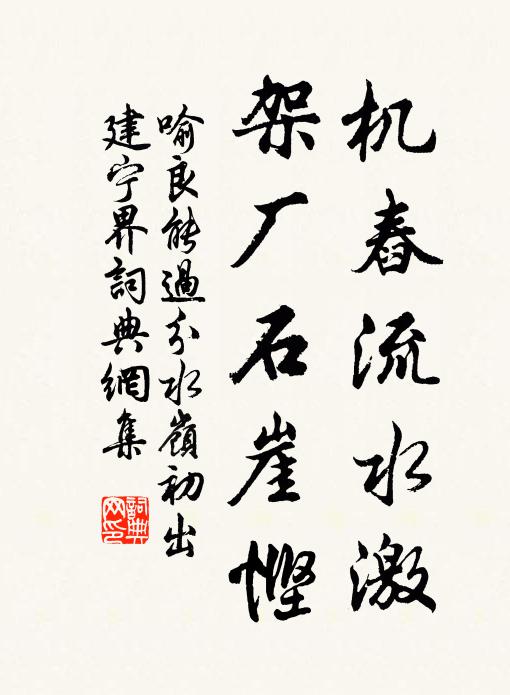 机舂流水激
架厂石崖悭
喻良能過分水嶺初出
建宁界詞典網集
詞典
网印